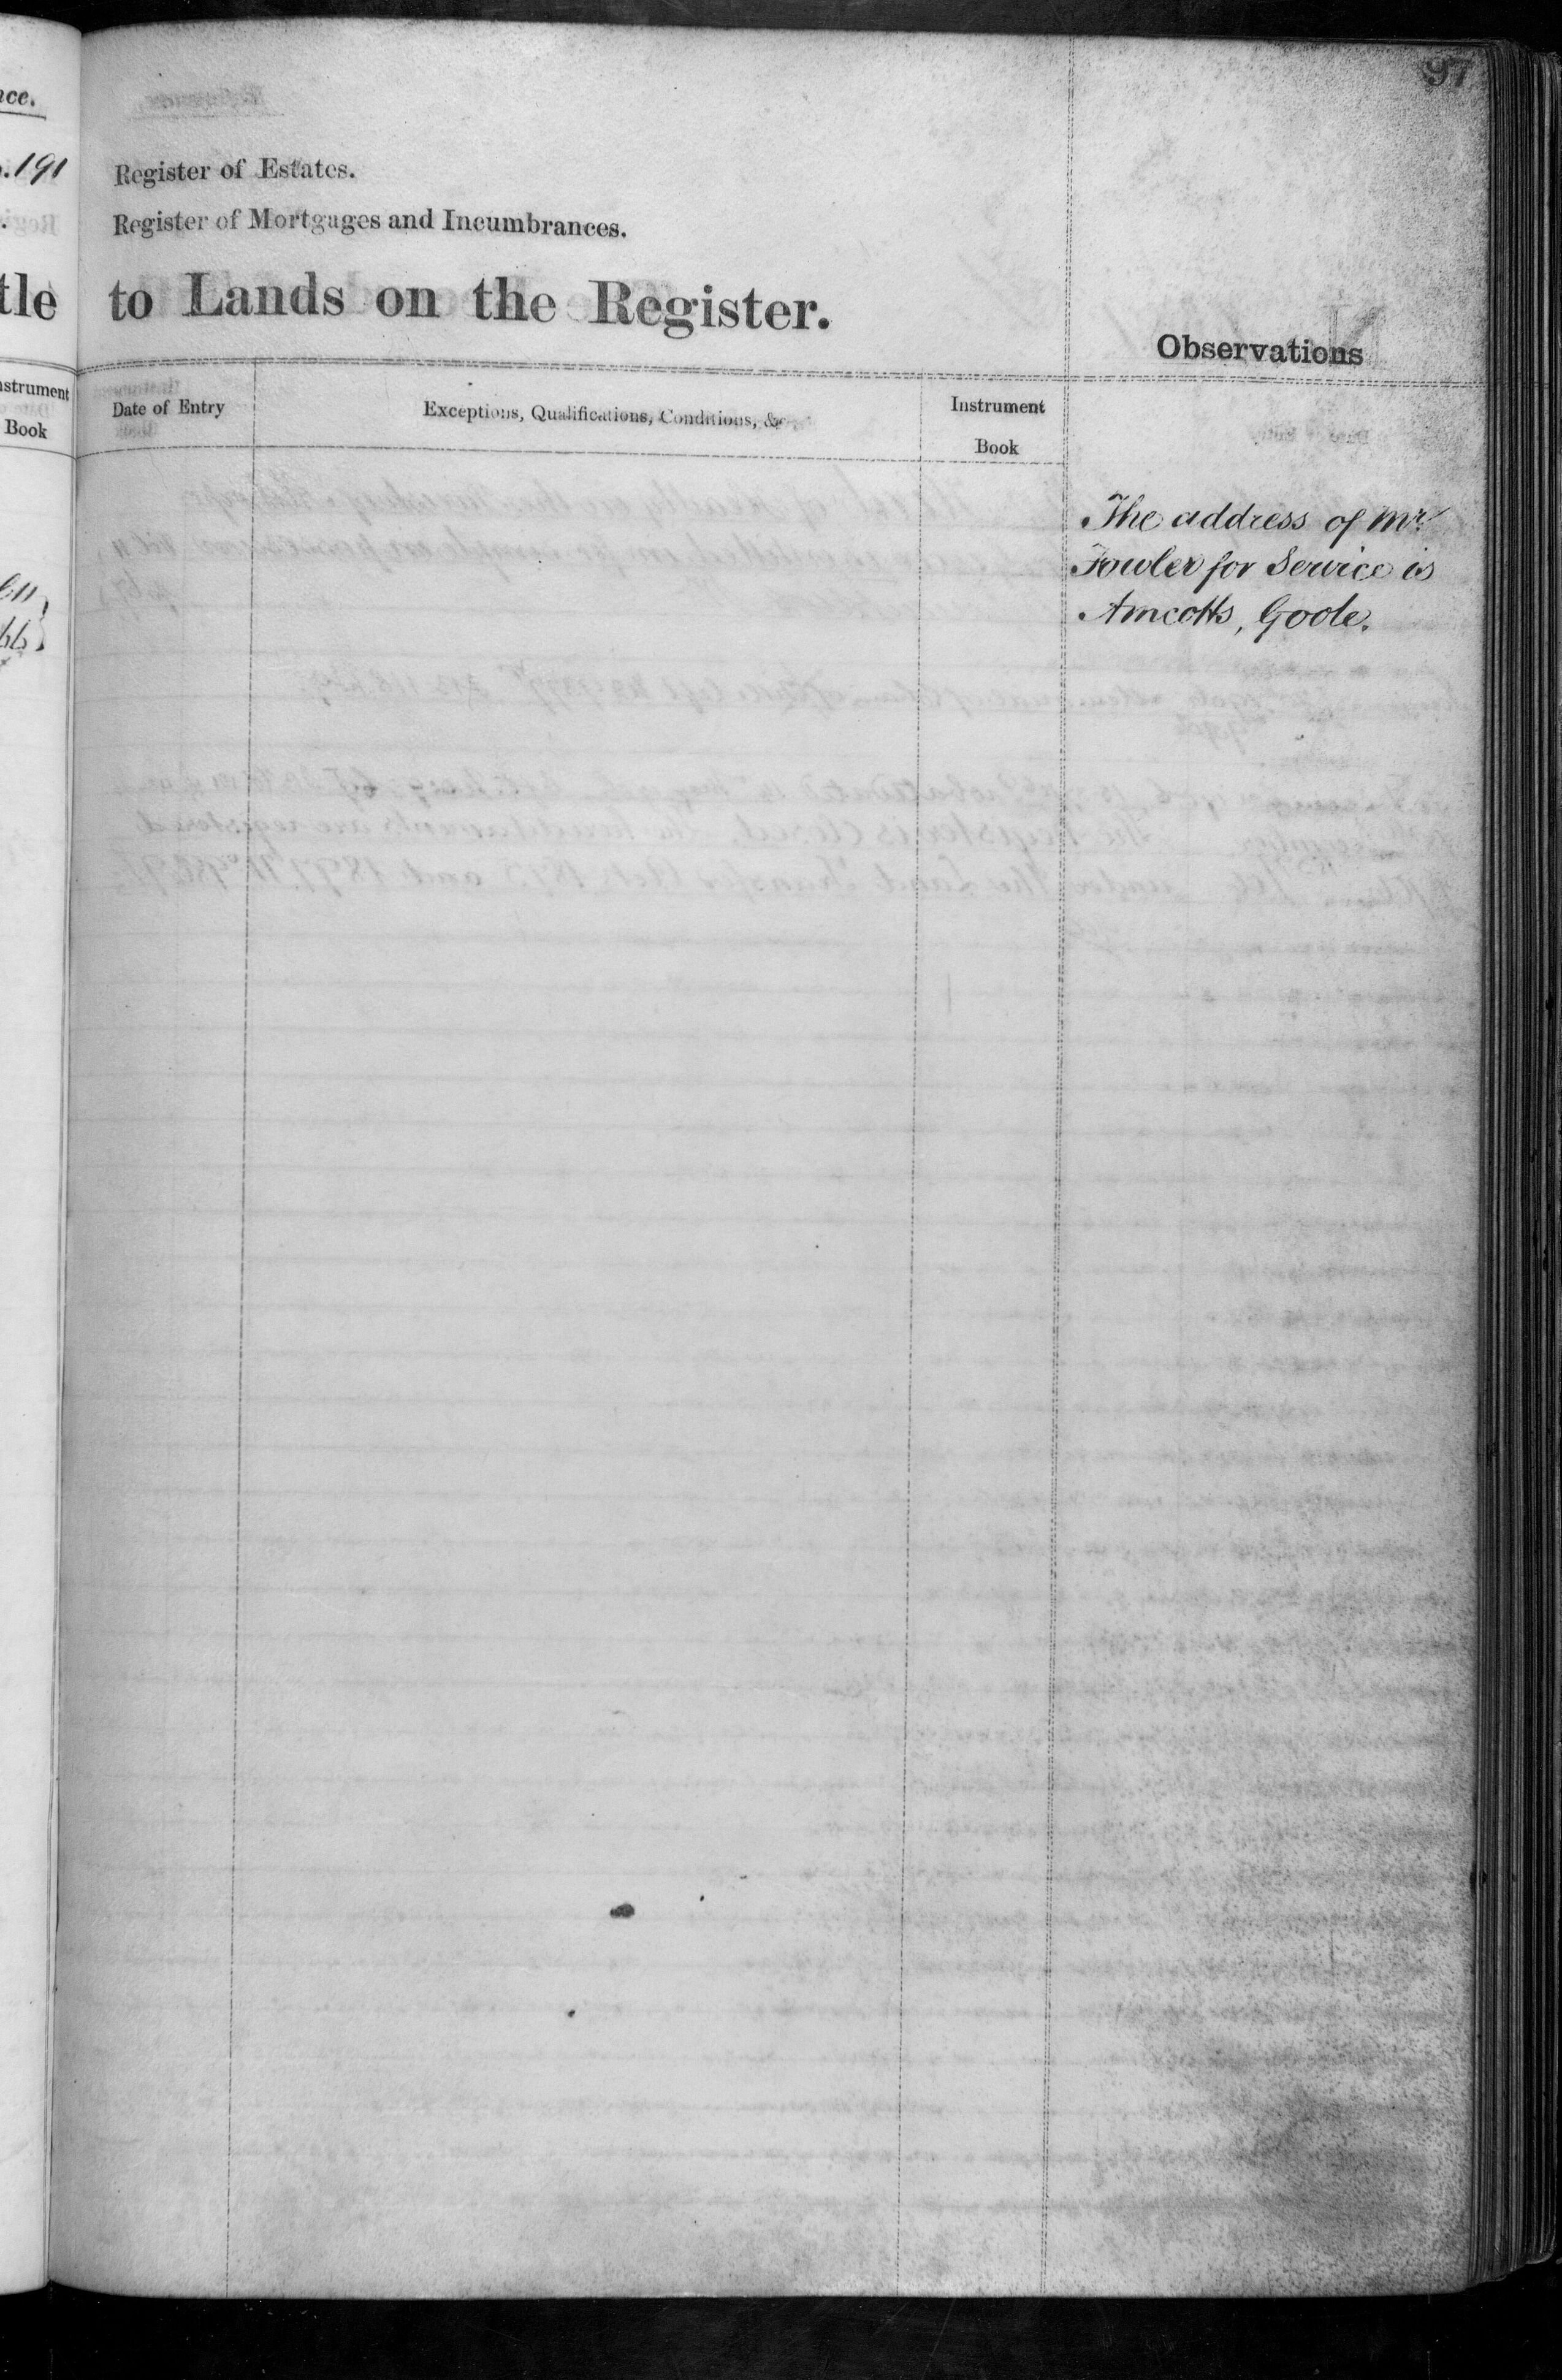 97
Register of Estates.
Register of Mortgages and Incumbrances.
to Lands on the Register.
Observations
Date of Entry
Exceptions, Qualifications, Conditions, &c
Instrument
Book
The address of Mr.
Fowler for Service is
Amcotts, Goole.
nce.
.191
tle
nstrument
Book